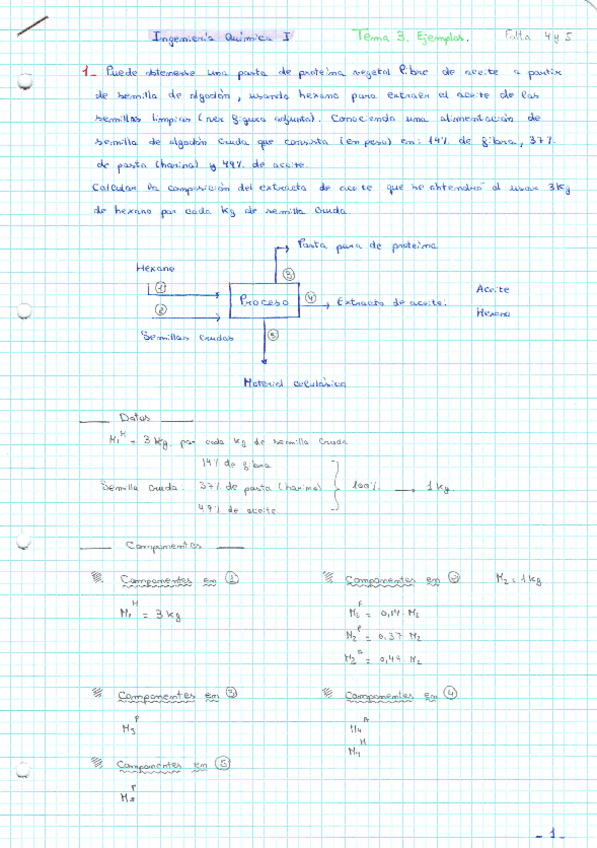 Ingeniería Química I Tema 3. Ejemplos. Falta 4 y 5
1- Puede obtenerse una pasta de proteína vegetal libre de aceite a partir
de semilla de algodón, usando hexano para extraer el aceite de las
semillas limpias (ver figura adjunta). Conociendo una alimentación de
semilla de algodón cruda que consista (en peso) en: 14% de fibra, 37%
de pasta (harina) y 49% de aceite.
Calcular la composición del extracto de aceite que se obtendrá al usar 3Kg
de hexano por cada Kg de semilla cruda.
Pasta pura de proteína
Hexano
3
1
Aceite
Proceso
4
Extracto de aceite:
2
Hexano
Semillas crudas
5
Material celulósico
Datos
M₁ᴴ = 3 Kg. por cada kg de semilla cruda
14% de fibra
Semilla cruda: 37% de pasta (harina) 100% → 1 kg.
49% de aceite
Componentes
Componentes en 1
Componentes en 2 M₂ = 1 kg
M₁ᴴ = 3 kg
M₂ᶠ = 0,14. M₂
M₂ᴾ = 0,37 M₂
M₂ᴬ = 0,49 M₂
Componentes en 3
Componentes en 4
M₃ᴾ
M₄ᴬ
M₄ᴴ
Componentes en 5
- 1 -